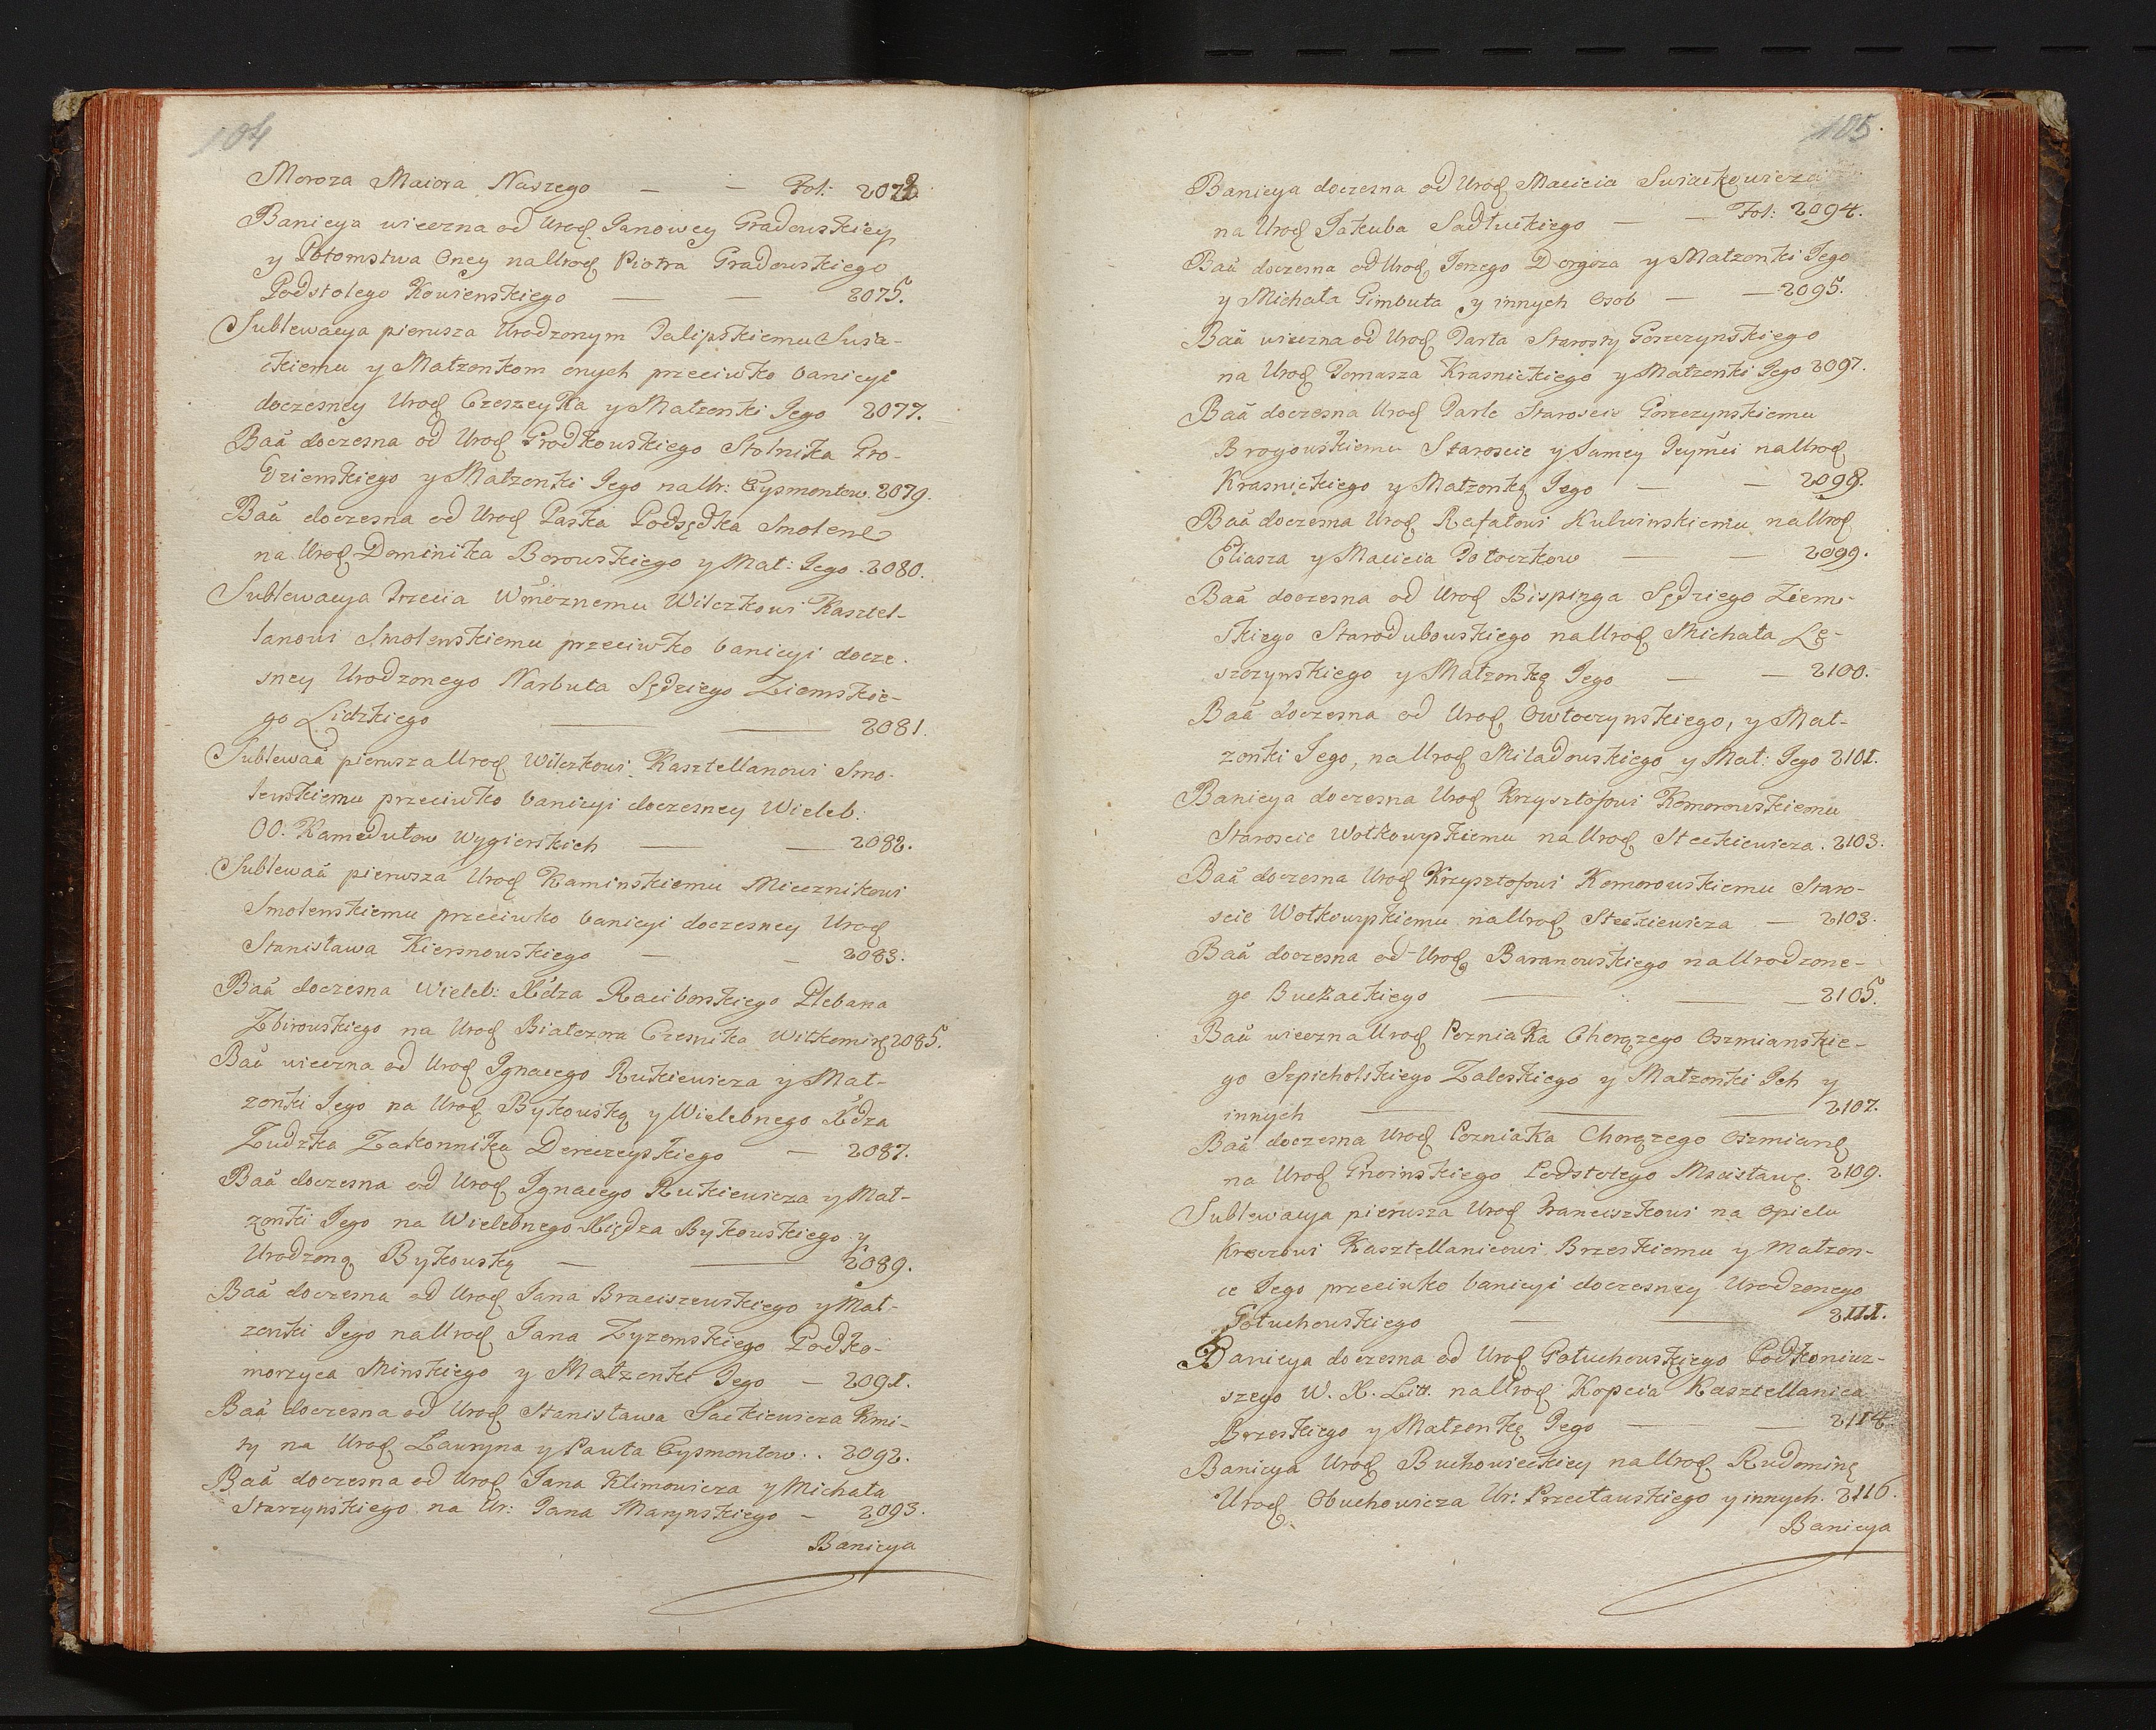 104
Moroza Maiora Naszego — — Fol: 2072.
Banicya wieczna od Urod Panowey Gradowskiey
y Potomstwa Oney na Urod Piotra Gradowskiego
Podstolego Kowienskiego — — 2075.
Sublewacya pierwsza Urodzonym
ckiemu y Małzonkom onych przeciwko banicyi
doczesney Urod Czeszeyka y Małzonki Jego 2077.
Baã doczesna od Urod Grodkowskiego Stolnika Gro-
dzienskiego y Małzonki Jego na Ur: Eysmontow. 2079.
Baã doczesna od Urod Paska Podsędka Smolenꝭ
na Urod Dominika Borowskiego y Mał: Jego . 2080.
Sublewacya trzecia Wmożnemu Wilczkowi Kasztel-
lanowi Smolenskiemu przeciwko banicyi docze-
sney Urodzonego Narbuta Sędziego Ziemskie-
go Lidzkiego — — 2081.
Sublewaã pierwsza Urod Wilczkowi Kasztellanowi Smo-
lenskiemu przeciwko banicyi doczesney Wieleb:
OO. Kamedułow Wygierskich — — 2082.
Sublewaã pierwsza Urod Kaminskiemu Miecznikowi
Smolenskiemu przeciwko banicyi doczesney Urod
Stanisława Kiersnowskiego — — 2083.
Baã doczesna Wieleb: Xdza Raciborskiego Plebana
Zbirowskiego na Urod Białozora Czesnika Wiłkomirꝭ 2085.
Baã wieczna od Urod Ignacego Rutkiewicza y Mał-
zonki Jego na Urod Bykowską y Wielebnego Xdza
Zudzka Zakonnika Dereczyskiego — 2087.
Baã doczesna od Urod Ignacego Rutkiewicza y Mał-
zonki Jego na Wielebnego Xiędza Bykowskiego y
Urodzoną Bykowską — — 2089.
Baã doczesna od Urod Jana Braciszewskiego y Mał-
zonki Jego na Urod Jana Zyzemskiego Podko-
morzyca Minskiego y Małzonki Jego — 2091.
Baã doczesna od Urod Stanisława Sackiewicza Kmi-
ty na Urod Lauryna y Pawła Eysmontow: . 2092.
Baã doczesna od Urod Jana Klimowicza y Michała
Starzynskiego na Ur: Jana Marynskiego — 2093.
Banicya
105.
Banicya doczesna od Urod Macieia
na Urod Jakuba Sadłuckiego — — Fol: 2094.
Baã doczesna od Urod Jerzego Dorgoza y Małzonki Jego
y Michała Gimbuta y innych Osob — — 2095.
Baã wieczna od Urod Parla Starosty Goszczynskiego
na Urod Tomasza Krasnickiego y Małzonki Jego 2097.
Baã doczesna Urod Parle Staroscie Goszczynskiemu
Brogowskiemu Staroscie y Samey Jeymci na Urod
Krasnickiego y Małzonkę Jego — — 2098.
Baã doczesna Urod Rafałowi Kulwinskiemu na Urod
Eliasza y Macieia Połoczkow — — 2099.
Baã doczesna od Urod Bispinga Sędziego Ziem-
skiego Starodubowskiego na Urod Michała Lę-
szczynskiego y Małzonkę Jego — — 2100.
Baã doczesna od Urod Owłoczynskiego, y Mał-
zonki Jego, na Urod Miladowskiego y Mał: Jego 2101.
Banicya doczesna Urod Krzysztofowi Komorowskiemu
Staroscie Wołkowyskiemu na Urod Steckiewicza . 2103.
Baã doczesna Urod Krzysztofowi Komorowskiemu Staro-
scie Wołkowyskiemu na Urod Steckiewicza — 2103.
Baã doczesna od Urod Baranowskiego na Urodzone-
go Buczackiego — — 2105.
Baã wieczna Urod Pozniaka Chorązego Oszmianskie-
go Szpicholskiego Zaleskiego y Małzonki Ich y
innych — — — 2107.
Baã doczesna Urod Pozniaka Chorązego Oszmianꝭ
na Urod Gnoinskiego Podstolego Mscisławꝭ. 2109.
Sublewacya pierwsza Urod Franciszkowi na Opielu
Kroczowi Kasztellanicowi Brzeskiemu y Małzon-
ce Jego przeciwko banicyi doczesney Urodzonego
Gołuchowskiego — — 2111.
Banicya doczesna od Urod Gołuchowskiego Podkoniu-
szego W. X. Litt. na Urod Kopcia Kasztellanica
Brzeskiego y Małzonkę Jego — — 2114.
Banicya Urod Buchowieckiey na Urod Rudominę
Urod Obuchowicza Ur: Przecławskiego y innych. 2116.
Banicya